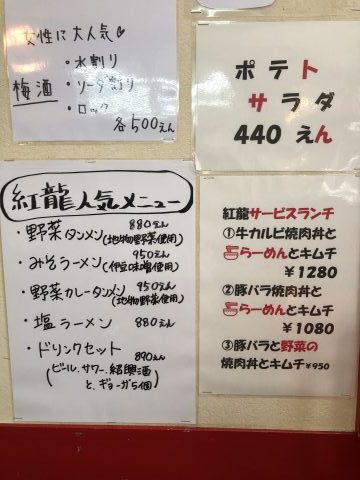 女性に大人気♡
・水割り
梅酒 ・ソーダ割り
・ロック
各500えん
ポテト
サラダ
440えん
紅龍人気メニュー
・野菜タンメン 880えん
(地物野菜使用)
・みそラーメン 950えん
(伊豆味噌使用)
・野菜カレータンメン 950えん
(地物野菜使用)
・塩ラーメン 880えん
・ドリンクセット 890えん
(ビール、サワー、紹興酒
と、ギョーザ5個)
紅龍サービスランチ
①牛カルビ焼肉丼と
らーめんとキムチ
￥1280
②豚バラ焼肉丼と
らーめんとキムチ
￥1080
③豚バラと野菜の
焼肉丼とキムチ￥950